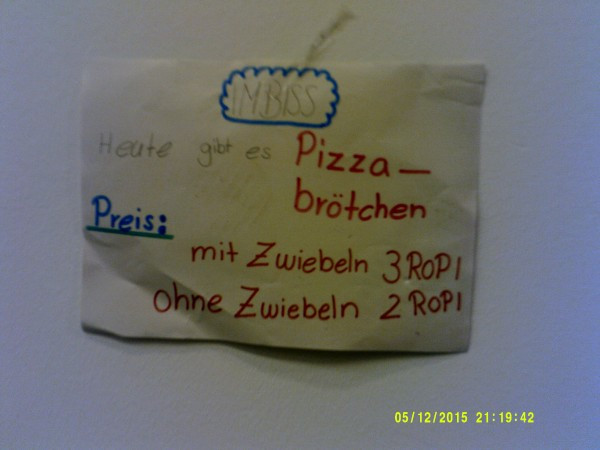 IMBISS
Heute gibt es Pizza-
brötchen
Preis:
mit Zwiebeln 3 ROPI
ohne Zwiebeln 2 ROPI
05/12/2015 21:19:42